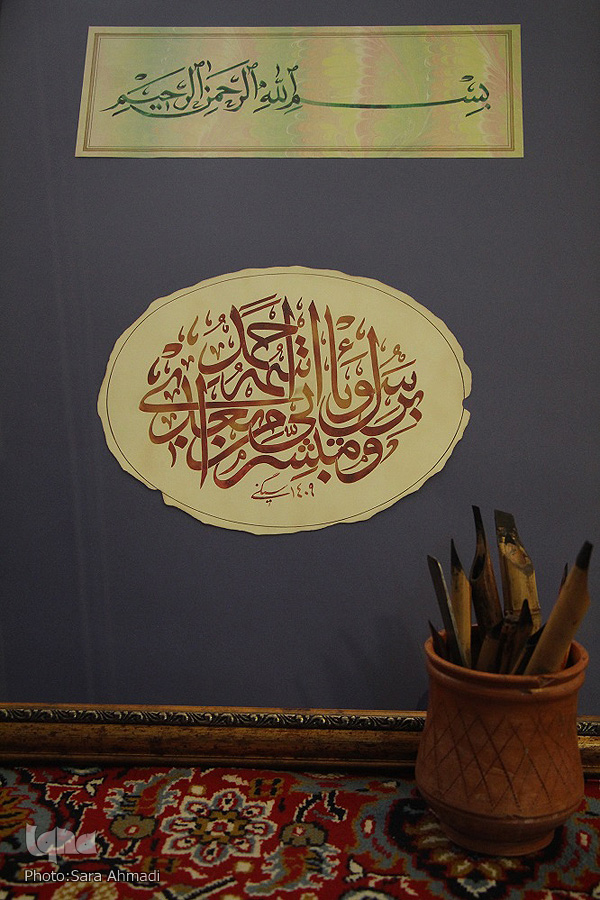 بِسْمِ اللهِ الرَّحْمنِ الرَّحيمِ
وَمُبَشِّراً بِرَسُولٍ يَأْتي مِنْ بَعْدي اسْمُهُ أَحْمَدُ
١٤٠٩
Iqna
Photo:Sara Ahmadi